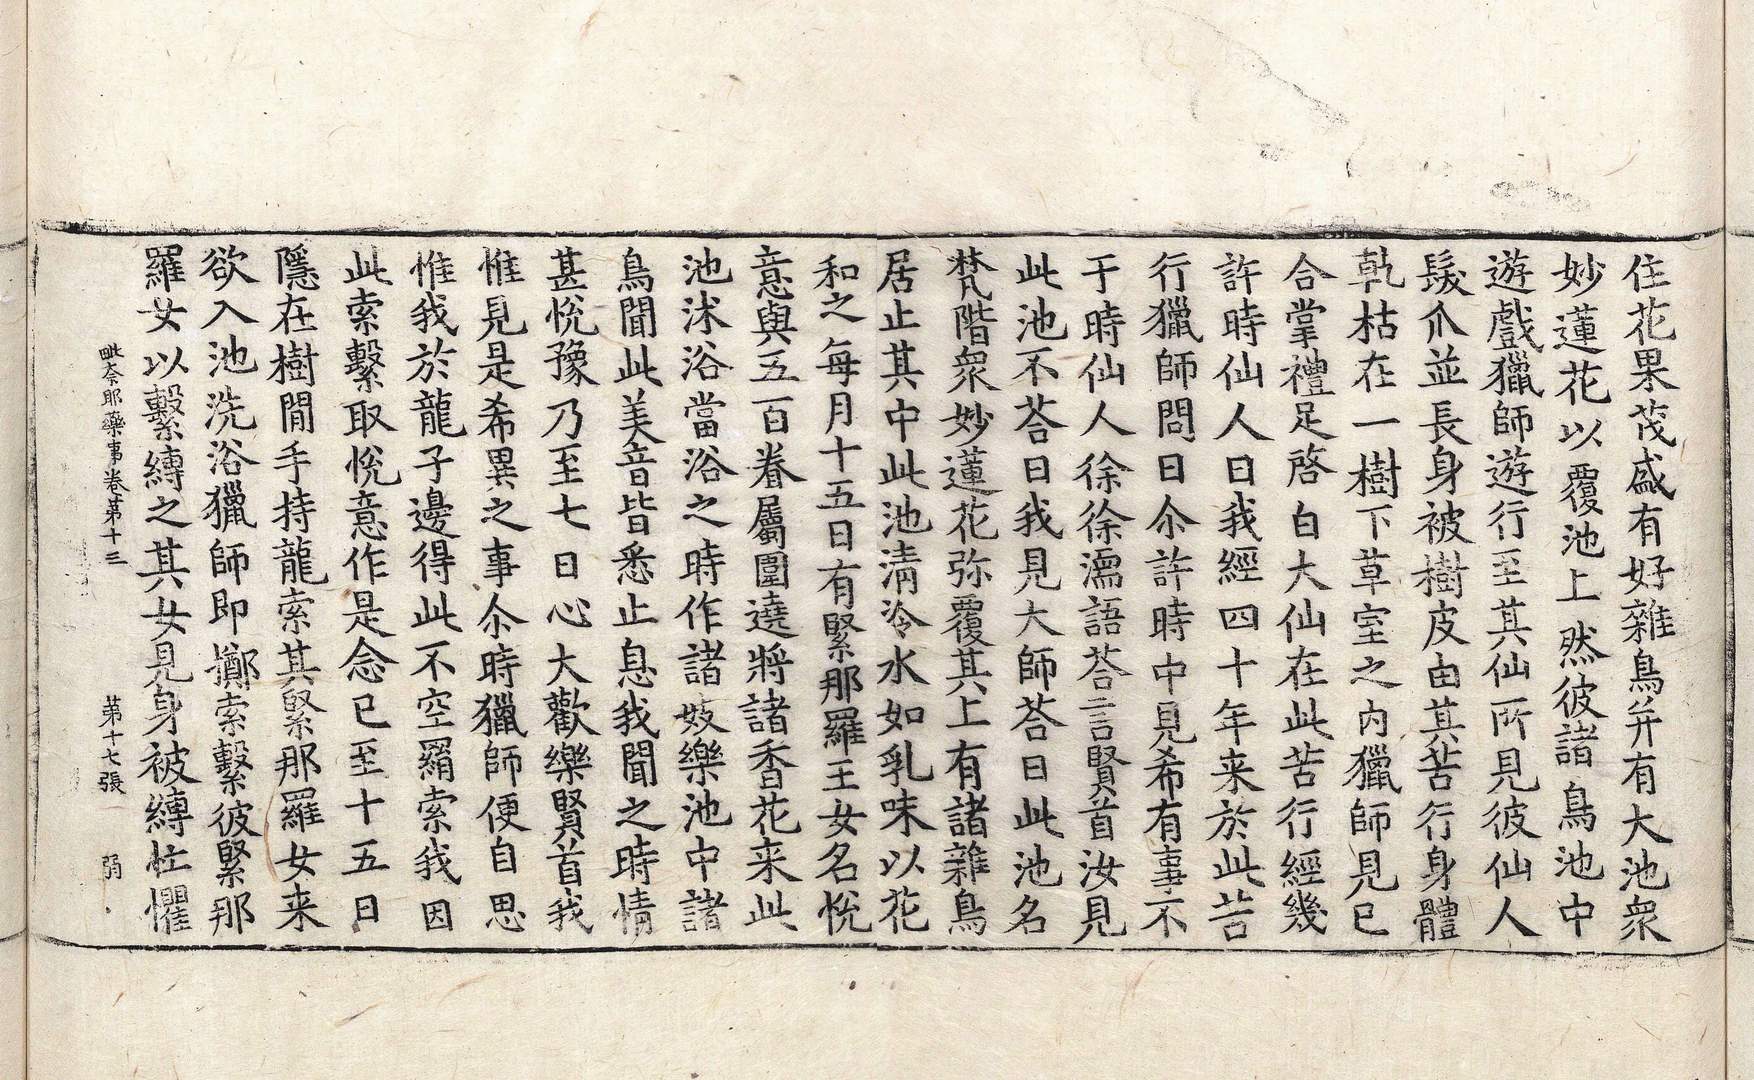 住花果茂盛有好雜鳥并有大池衆
妙蓮花以覆池上然彼諸鳥池中
遊戲獵師遊行至其仙所見彼仙人
髮爪並長身被樹皮由其苦行身體
乹枯在一樹下草室之內獵師見已
合掌禮足啓白大仙在此苦行經幾
許時仙人曰我經四十年来於此苦
行獵師問曰尒許時中見希有事不
于時仙人徐徐濡語荅言賢首汝見
此池不荅曰我見大師荅曰此池名
梵階衆妙蓮花弥覆其上有諸雜鳥
居止其中此池淸冷水如乳味以花
和之每月十五日有緊那羅王女名悅
意與五百眷屬圍遶將諸香花来此
池沐浴當浴之時作諸妓樂池中諸
鳥聞此美音皆悉止息我聞之時情
甚悅豫乃至七日心大歡樂賢首我
惟見是希異之事尒時獵師便自思
惟我於龍子邊得此不空羂索我因
此索繫取悅意作是念已至十五日
隱在樹閒手持龍索其緊那羅女来
欲入池洗浴獵師即擲索繫彼緊那
羅女以繫縛之其女見身被縛忙懼
毗柰耶藥事卷第十三 第十七張 弱